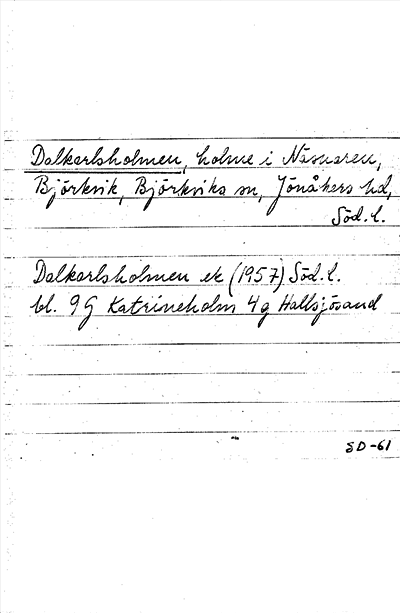 Dalkarlsholmen, holme i Näsnaren,
Björkvik, Björkviks sn, Jönåkers hd,
Söd. l.
Dalkarlsholmen ek (1957) Söd. l.
bl. 9 G Katrineholm 4 g Hallsjösand
SD-61